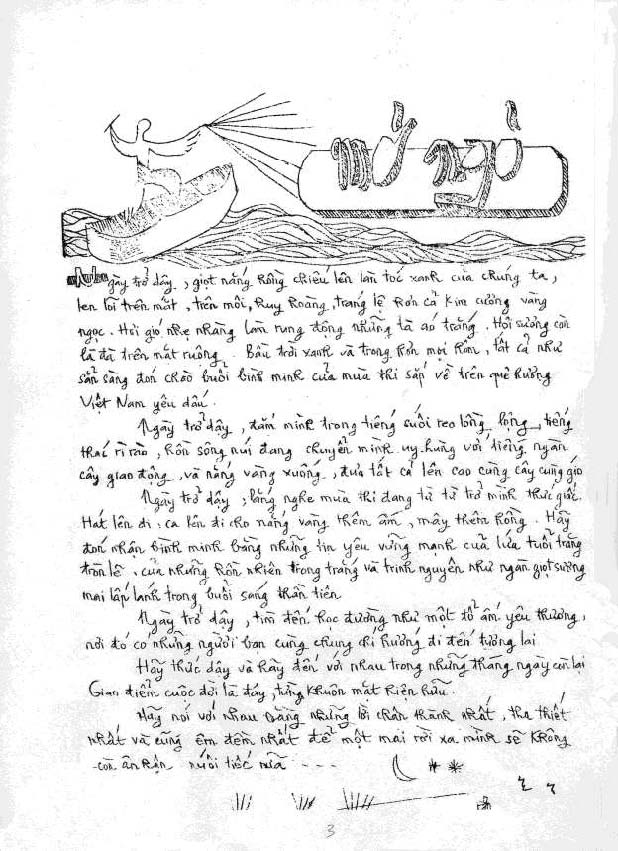 mở ngỏ
Ngày trở dậy, giọt nắng hồng chiếu lên làn tóc xanh của chúng ta,
len lỏi trên mắt, trên môi, huy hoàng, tráng lệ hơn cả kim cương vàng
ngọc. Hơi gió nhẹ nhàng làm rung động những tà áo trắng. Hơi sương còn
là đà trên mặt ruộng. Bầu trời xanh và trong hơn mọi hôm, tất cả như
sẵn sàng đón chào buổi bình minh của mùa thi sắp về trên quê hương
Việt Nam yêu dấu.
Ngày trở dậy, đắm mình trong tiếng suối reo lồng lộng, tiếng
thác rì rào, hồn sông núi đang chuyển mình uy hùng với tiếng ngàn
cây giao động, và nắng vàng xuống, đưa tất cả lên cao cùng cây cùng gió
Ngày trở dậy, lắng nghe mùa thi đang từ từ trở mình thức giấc.
Hát lên đi, ca lên đi cho nắng vàng thêm ấm, mây thêm hồng. Hãy
đón nhận bình minh bằng những tin yêu vững mạnh của lứa tuổi trăng
tròn lẻ, của những hồn nhiên trong trắng và trinh nguyên như ngàn giọt sương
mai lấp lánh trong buổi sáng thần tiên.
Ngày trở dậy, tìm đến học đường như một tổ ấm yêu thương,
nơi đó có những người bạn cùng chung chí hướng đi đến tương lai
Hãy thức dậy và hãy đến với nhau trong những tháng ngày còn lại
Giao điểm cuộc đời là đấy, từng khuôn mặt hiện hữu.
Hãy nói với nhau bằng những lời chân thành nhất, tha thiết
nhất và cũng êm đềm nhất để một mai rời xa mình sẽ không
còn ân hận, nuối tiếc nữa - - - -
3